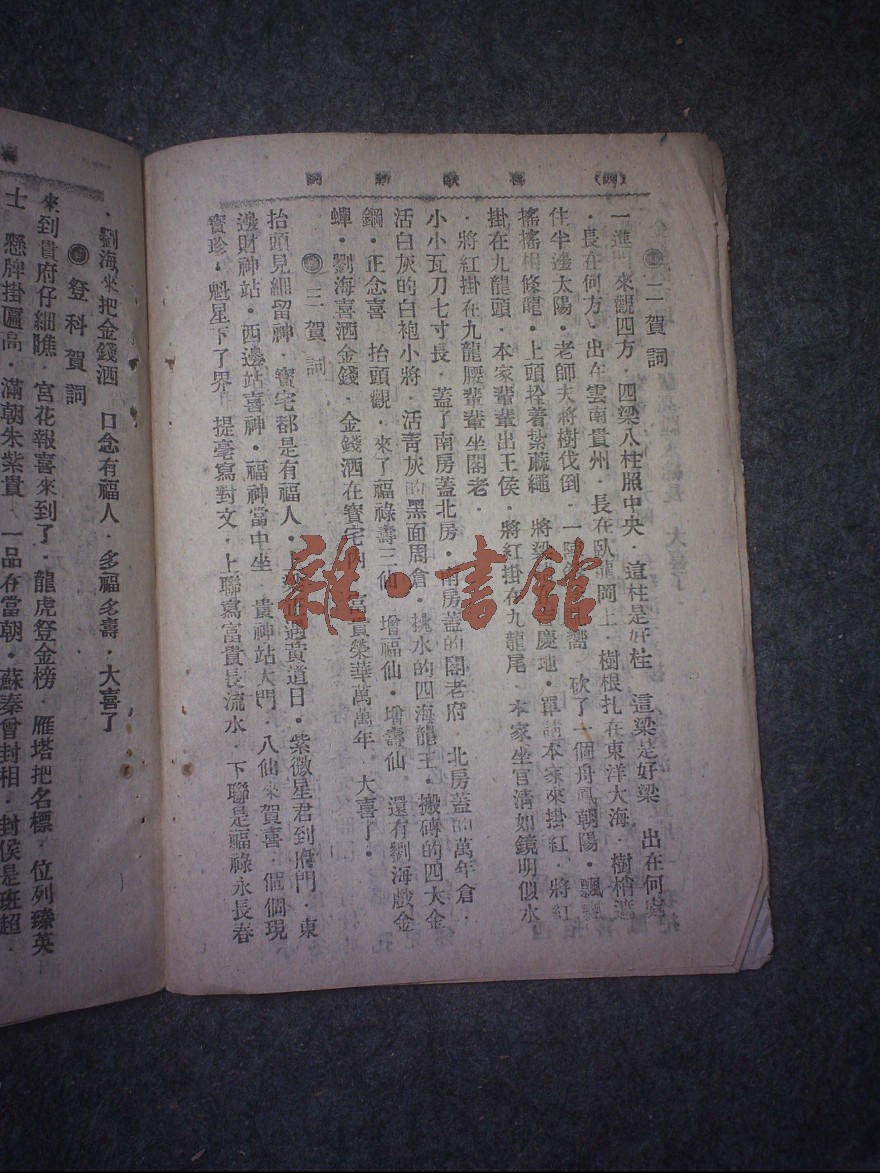 (四) 喜歌新詞
二賀詞
一進門來觀四方．四梁八柱照中央．這柱是好柱 這梁是好梁 出在何處
．長在何方．出在雲南貴州．長在臥龍岡上．樹根扎在東洋大海．樹梢遮
住半邊太陽．老師夫將樹伐倒．一陣 響 砍了一個丹鳳朝陽．飄
搖搖相條龍．上頭拴着紮蔴繩 將梁 慶地．單請本家來掛紅．將紅
掛在九龍頭．本家輩輩出王侯．將紅掛在九龍尾．本家坐官清如鏡明似水
．將紅掛在九龍腰輩輩坐閣老．
小小瓦刀七寸長．蓋了南房蓋北房．南房蓋的閣老府．北房蓋的萬年倉．
活白灰的白袍小將．活青灰的黑面周倉．挑水的四海龍王．搬磚的四大金
鋼．正念喜 抬頭觀．來了福祿壽三仙 增福仙．增壽仙 還有劉海戲金
蟬．劉海喜洒金錢．金錢洒在寶宅內 富貴榮華萬萬年．大喜了．
三賀詞
抬頭見細留神．寶宅都是有福人． 遇黄道日．紫微星君到府門．東
邊財神站．西邊站喜神．福神當中坐．貴神站大門．八仙來賀喜．個個現
寶珍．魁星下了界 提毫寫對文．上聯寫富貴長流水．下聯是福祿永長春
．劉海來把金錢洒 口念有福人．多福多壽．大喜了
登科賀詞
來到貴府仔細瞧．宮花報喜來到了．龍虎登金榜．雁塔把名標．位列臻英
士 懸牌掛匾高．滿朝朱紫貴 一品在當朝．蘇秦曾封相．封侯是班超．
雜·書館